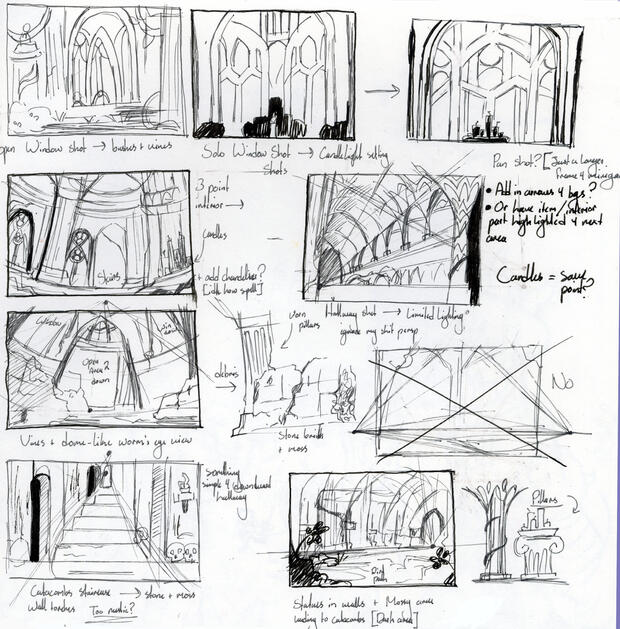 open Window shot → bushes + vines
Solo Window Shot → Candlelight setting
Shots
Pan shot? [Just a longer
frame 4
3 point
interior →
Candles
+ add chandelier?
[idk how spell]
Stairs
• Add in arrows 4 bgs?
• Or have item/interior
part highlighted 4 next
area
Candles = save
point?
Hallway shot → Limited Lighting?
ignore my shit persp
Open
Area ?
down
worn
pillars
debris →
Stone
+ moss
No
Vines + dome-like worm's eye view
Something
simple 4 downward
hallway
Pillars
Dirt
path
Catacombs staircase → stone + moss
Wall torches Too rustic?
Statues in walls + Mossy area
leading to catacombs [Dark area]